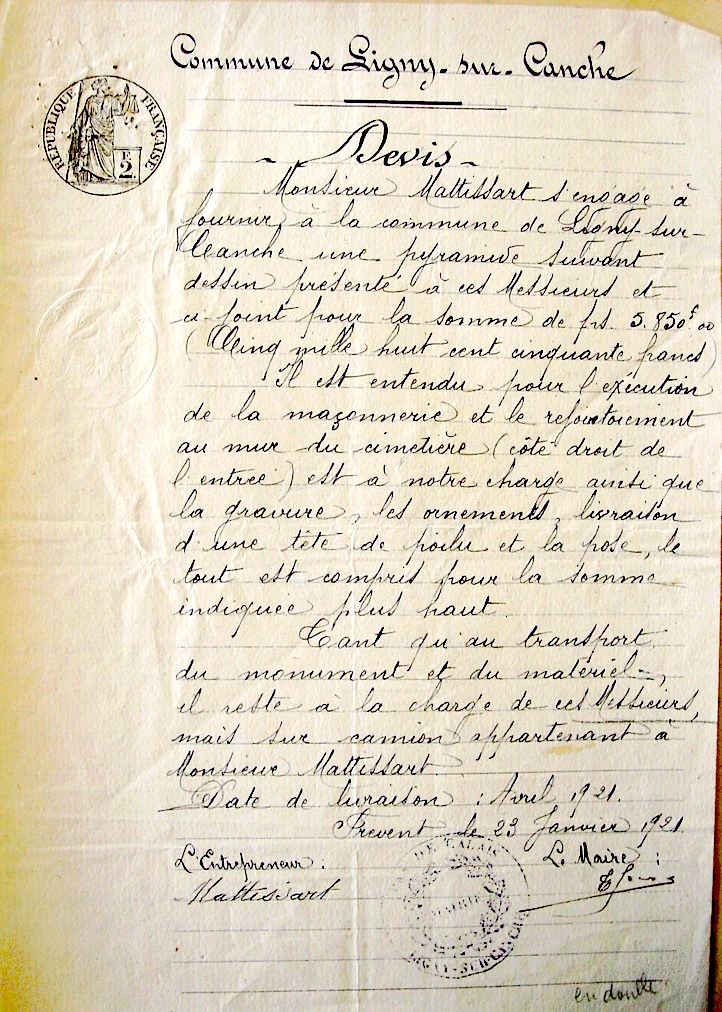 Commune de Ligny-sur-Canche
RÉPUBLIQUE FRANÇAISE
F
2.
~ Devis ~
Monsieur Mattissart s'engage à
fournir, à la commune de Ligny-sur-
Canche une pyramide suivant
dessin présenté à ces Messieurs et
ci-joint pour la somme de frs. 5.850f 00
(Cinq mille huit cent cinquante francs)
Il est entendu pour l'exécution
de la maçonnerie et le rejointoiement
au mur du cimetière (côté droit de
l'entrée) est à notre charge ainsi que
la gravure, les ornements, livraison
d'une tête de poilu et la pose, le
tout est compris pour la somme
indiquée plus haut.
Tant qu'au transport
du monument et du matériel-,
il reste à la charge de ces Messieurs,
mais sur camion appartenant à
Monsieur Mattissart.
Date de livraison : Avril 1921.
Frévent le 23 Janvier 1921.
L'Entrepreneur :
Le Maire :
Mattissart
DE CALAIS
MAIRIE
LIGNY-SUR-CANCHE
en double